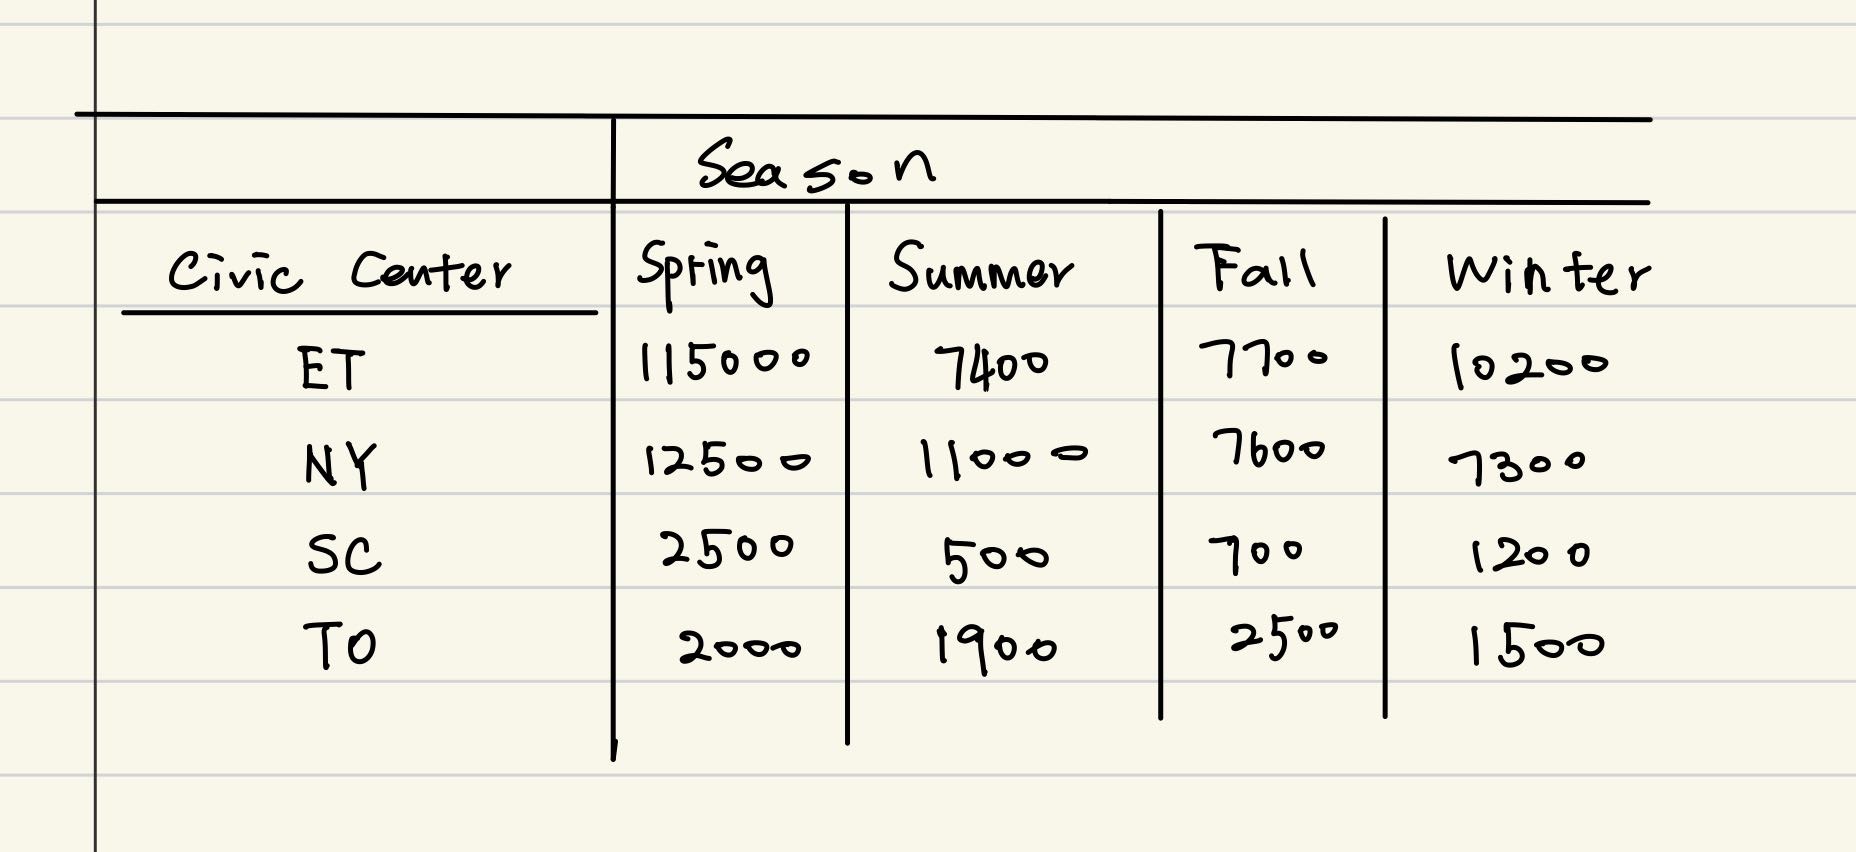 Season
Civic Center Spring Summer Fall Winter
ET 115000 7400 7700 10200
NY 12500 11000 7600 7300
SC 2500 500 700 1200
TO 2000 1900 2500 1500